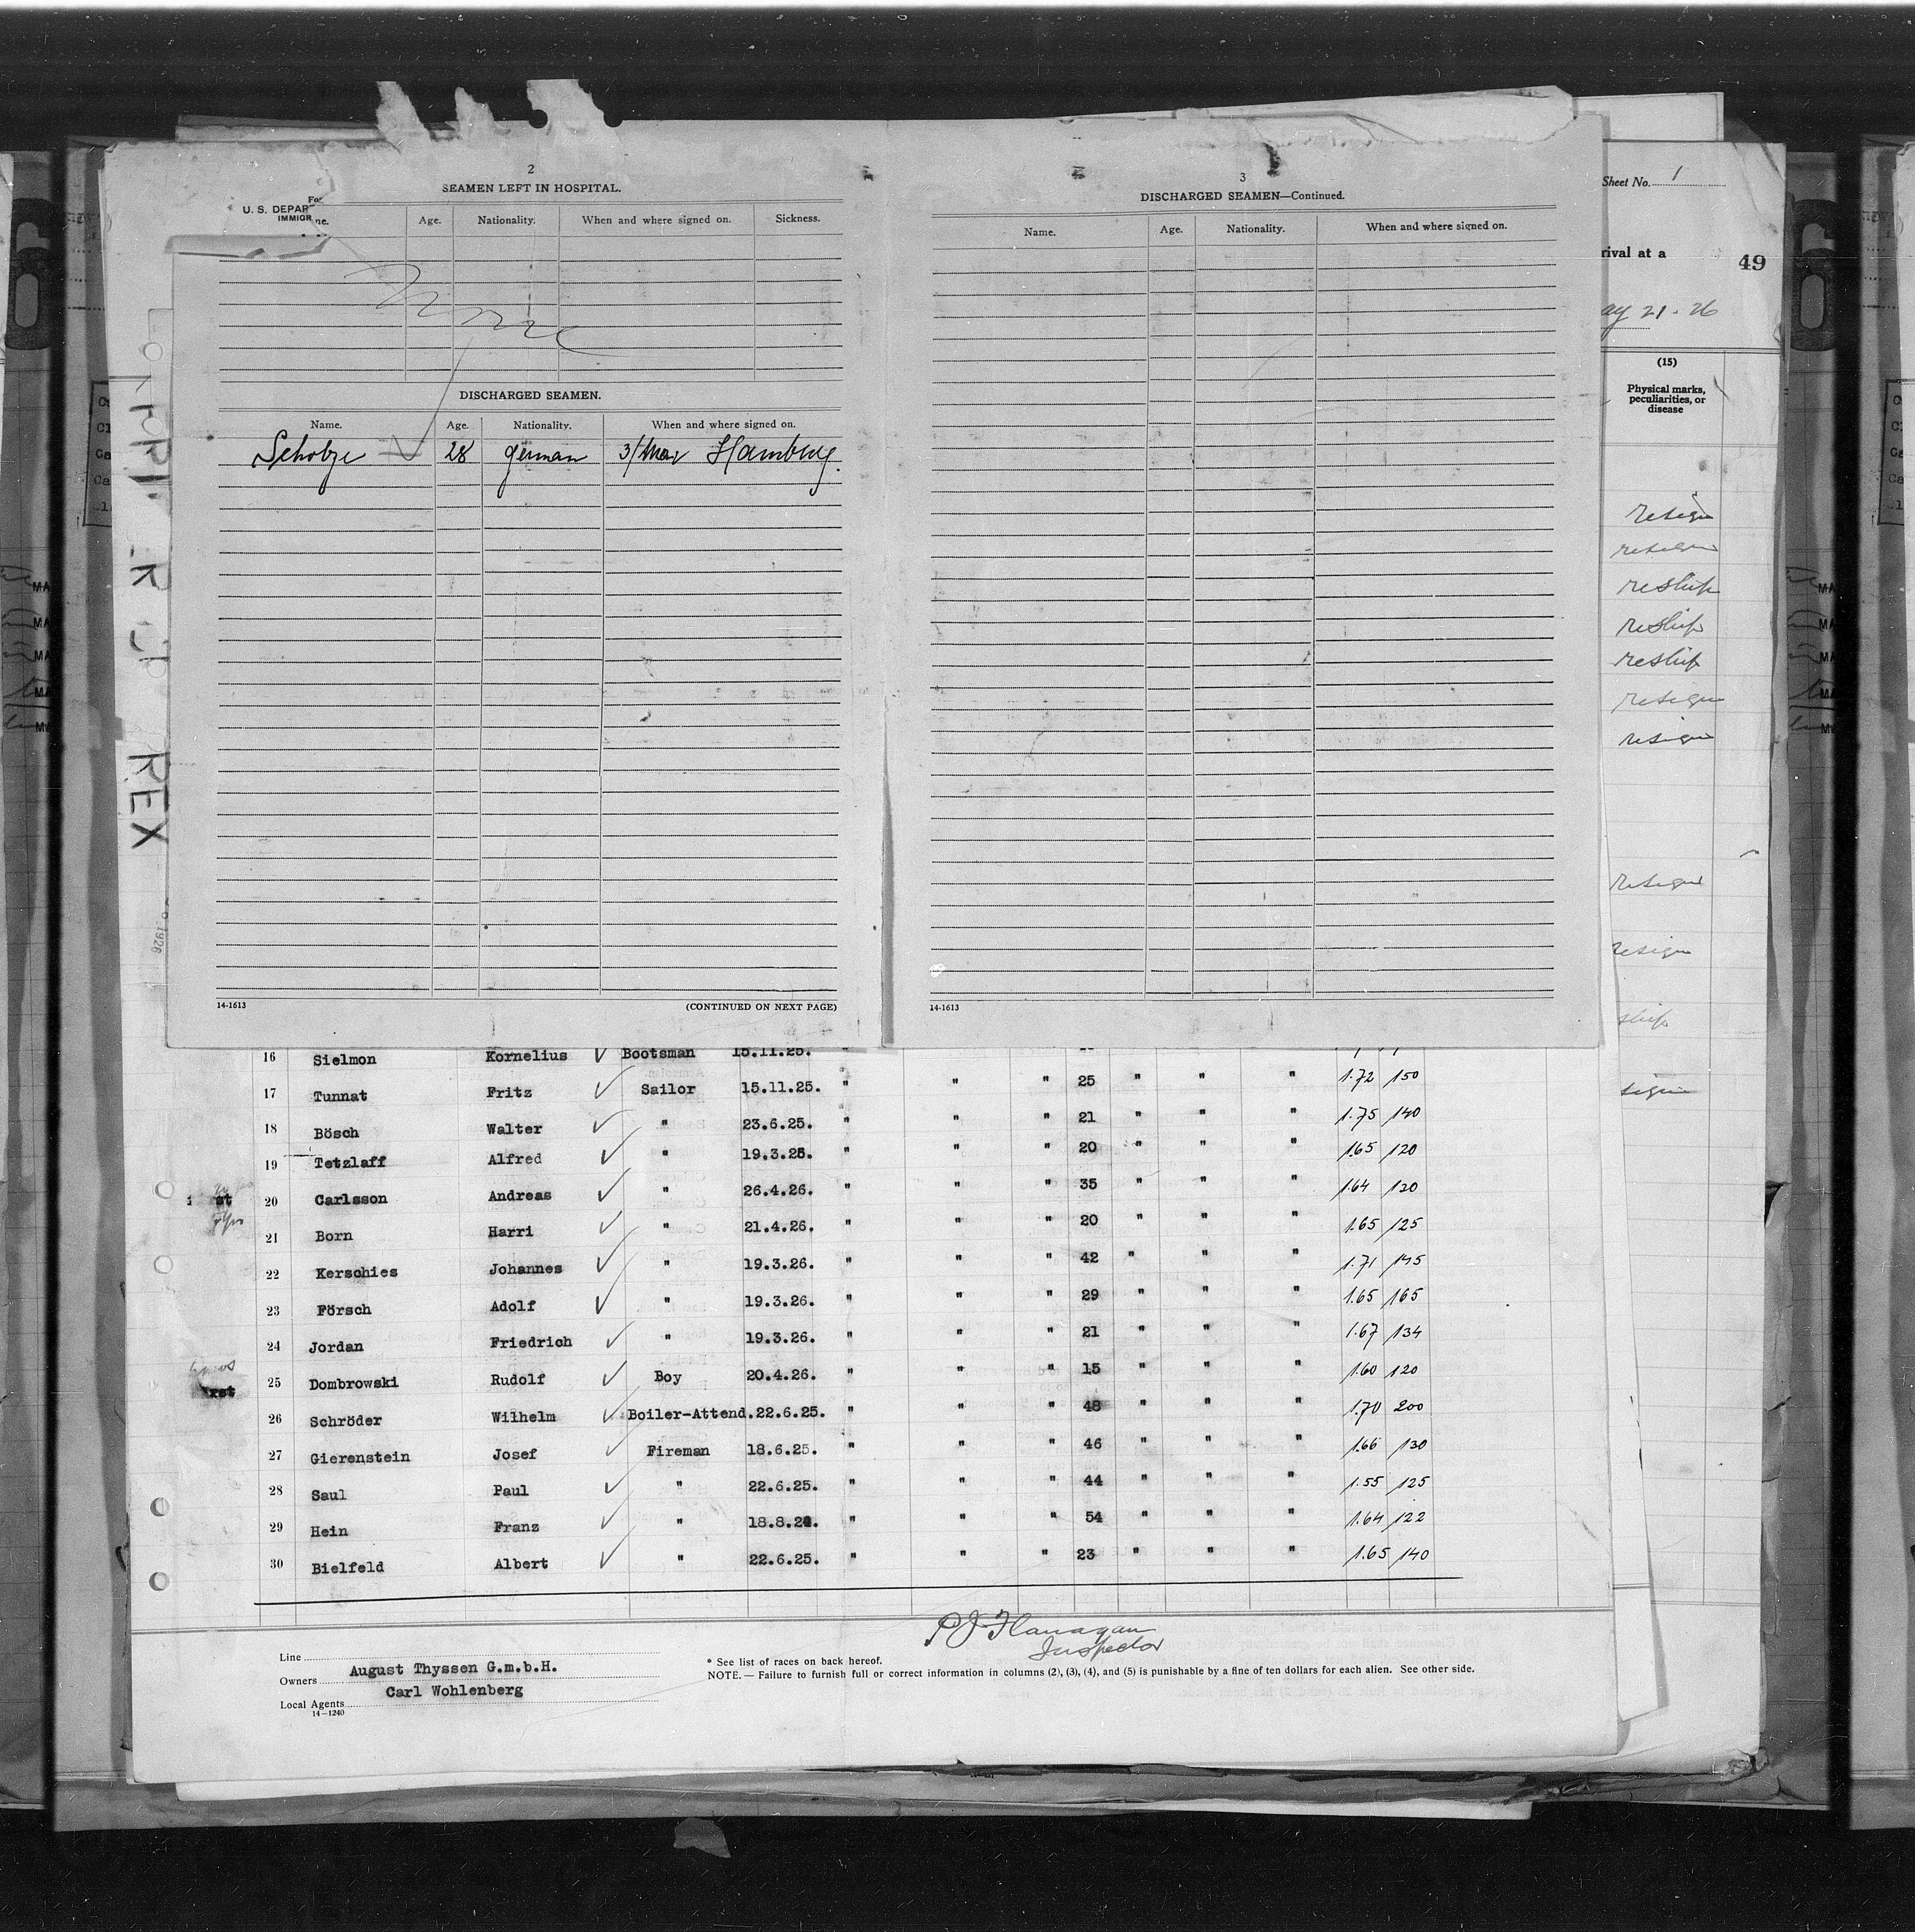 2
SEAMEN LEFT IN HOSPITAL.
U. S. DEPAR
IMMIGR
Age. Nationality. When and where signed on. Sickness.
None
DISCHARGED SEAMEN.
Name. Age. Nationality. When and where signed on.
Scholze 28 German 3/Mar Hamburg.
14-1613 (CONTINUED ON NEXT PAGE)
3
DISCHARGED SEAMEN—Continued.
Name. Age. Nationality. When and where signed on.
14-1613
Sheet No. 1
rival at a 49
ay 21-26
(15)
Physical marks,
peculiarities, or
disease
resign
resign
reship
reship
reship
resign
resign
resign
resign
ship
sign
REX
1926
16 Sielmon Kornelius ✓ Bootsman 15.11.25. "
17 Tunnat Fritz ✓ Sailor 15.11.25. " " " 25 " " " 1.72 150
18 Bösch Walter ✓ " 23.6.25. " " " 21 " " " 1.75 140
19 Tetzlaff Alfred ✓ " 19.3.26. " " " 20 " " " 1.65 120
20 Carlsson Andreas ✓ " 26.4.26. " " " 35 " " " 1.64 130
21 Born Harri ✓ " 21.4.26. " " " 20 " " " 1.65 125
22 Kerschies Johannes ✓ " 19.3.26. " " " 42 " " " 1.71 145
23 Försch Adolf ✓ " 19.3.26. " " " 29 " " " 1.65 165
24 Jordan Friedrich ✓ " 19.3.26. " " " 21 " " " 1.67 134
25 Dombrowski Rudolf ✓ Boy 20.4.26. " " " 15 " " " 1.60 120
26 Schröder Wilhelm ✓ Boiler-Attend. 22.6.25. " " " 48 " " " 1.70 200
27 Gierenstein Josef ✓ Fireman 18.6.25. " " " 46 " " " 1.66 130
28 Saul Paul ✓ " 22.6.25. " " " 44 " " " 1.55 125
29 Hein Franz ✓ " 18.8.24. " " " 54 " " " 1.64 122
30 Bielfeld Albert ✓ " 22.6.25. " " " 23 " " " 1.65 140
P J Flanagan
Inspector
Line
Owners August Thyssen G.m.b.H.
Local Agents Carl Wohlenberg
14-1240
* See list of races on back hereof.
NOTE.— Failure to furnish full or correct information in columns (2), (3), (4), and (5) is punishable by a fine of ten dollars for each alien. See other side.